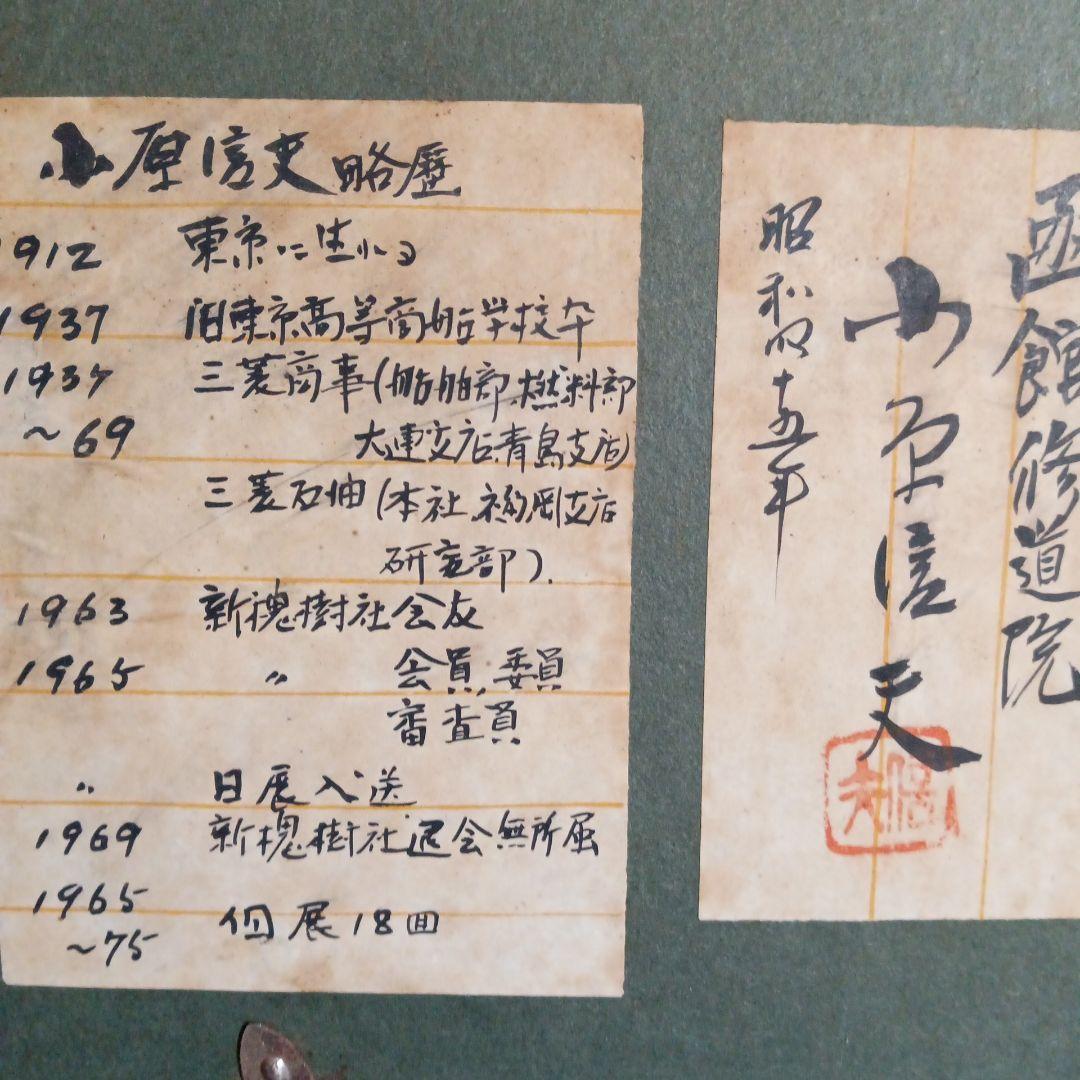 小原信史略歴
1912 東京に生れる
1937 旧東京高等商船学校卒
1937 三菱商事(船舶部.燃料部
~69 大連支店.青島支店)
三菱石油(本社.福岡支店
研究部).
1963 新槐樹社会友
1965 〃 会員.委員
審査員
〃 日展入選
1969 新槐樹社退会無所属
1965
~75 個展18回
函館修道院
小原信
昭和四十五年